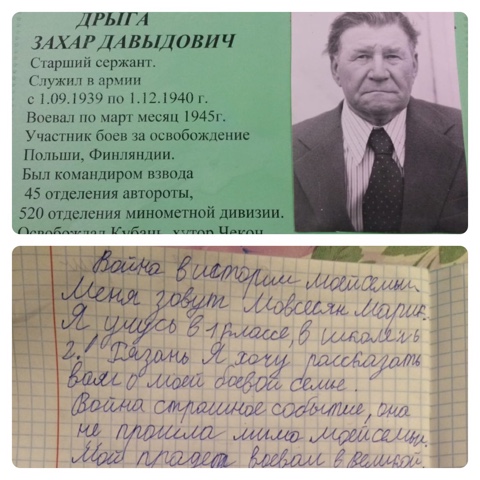 ДРЫГА
ЗАХАР ДАВЫДОВИЧ
Старший сержант.
Служил в армии
с 1.09.1939 по 1.12.1940 г.
Воевал по март месяц 1945г.
Участник боев за освобождение
Польши, Финляндии.
Был командиром взвода
45 отделения автороты,
520 отделения минометной дивизии.
Освобождал Кубань, хутор Чекон
Война в истории моей семьи.
Меня зовут Мовсесян Марик.
Я учусь в 1 классе, в школе
г. Рязань Я хочу рассказать
вам о моей боевой семье.
Война страшное событие, она
не прошла мимо моей семьи.
Мой прадед воевал в великой